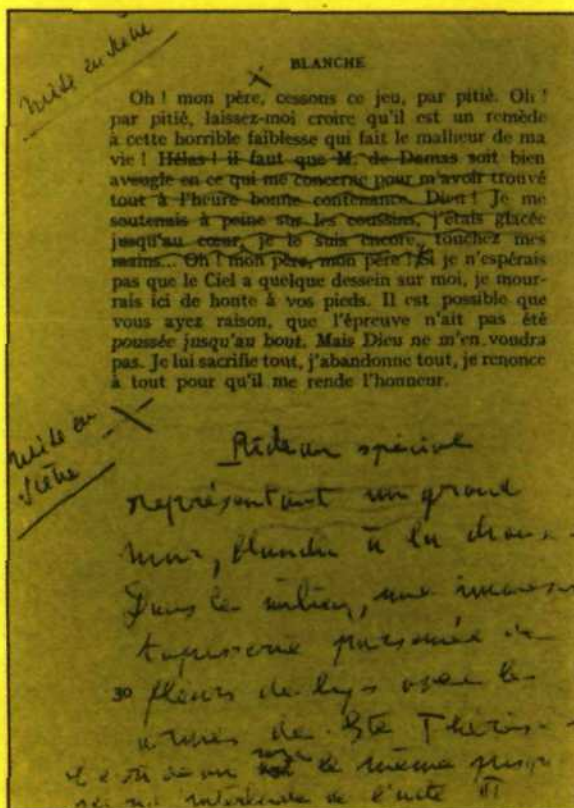 mise en scène
BLANCHE
Oh ! mon père, cessons ce jeu, par pitié. Oh !
par pitié, laissez-moi croire qu'il est un remède
à cette horrible faiblesse qui fait le malheur de ma
vie ! Hélas ! il faut que M. de Damas soit bien
aveugle en ce qui me concerne pour m'avoir trouvé
tout à l'heure bonne contenance. Dieu ! Je me
soutenais à peine sur les coussins, j'étais glacée
jusqu'au cœur, je le suis encore, touchez mes
mains... Oh ! mon père, mon père ! Si je n'espérais
pas que le Ciel a quelque dessein sur moi, je mour-
rais ici de honte à vos pieds. Il est possible que
vous ayez raison, que l'épreuve n'ait pas été
poussée jusqu'au bout. Mais Dieu ne m'en voudra
pas. Je lui sacrifie tout, j'abandonne tout, je renonce
à tout pour qu'il me rende l'honneur.
mise en
scène
Rideau spécial
représentant un grand
mur, blanchi à la chaux
Dans le milieu, une immense
tapisserie parsemée de
30
fleurs de lys avec les
armes de Ste Thérèse
le même
de l'acte III